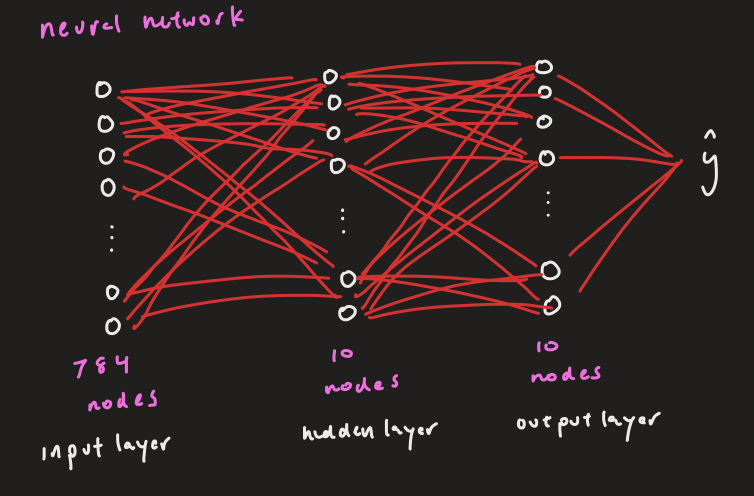 neural network
ŷ
784
nodes
input layer
10
nodes
hidden layer
10
nodes
output layer